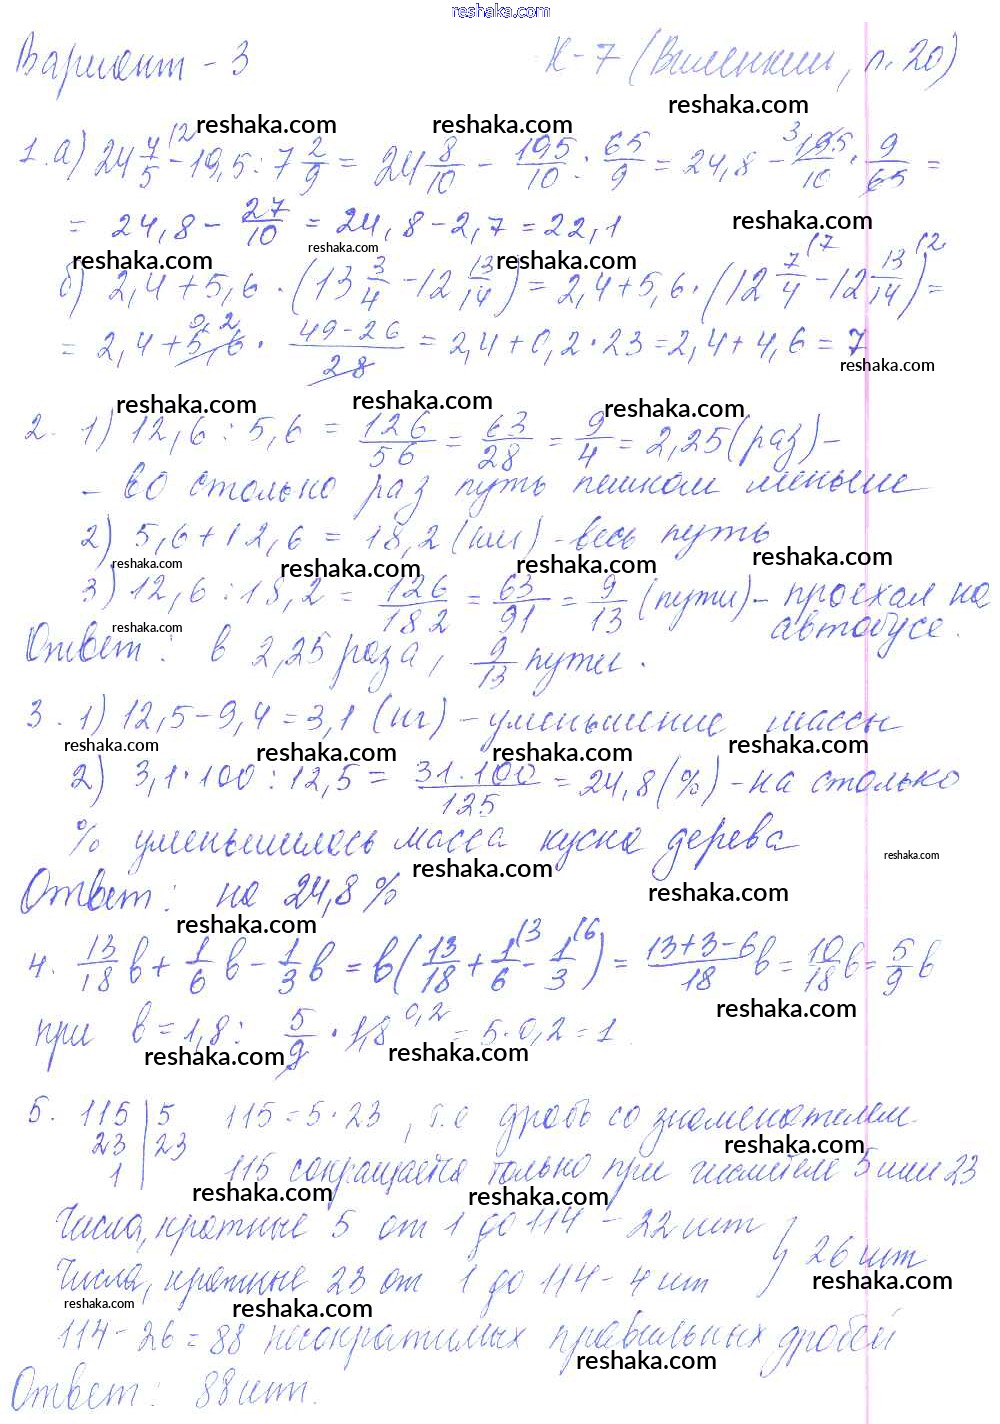 reshaka.com
Вариант - 3 К-7 (Виленкин, п. 20)
reshaka.com
reshaka.com reshaka.com
1.а) 24 4/5 (2 - 19,5 : 7 2/9 = 24 8/10 - 195/10 : 65/9 = 24,8 - 3 195/10 · 9/65 =
= 24,8 - 27/10 = 24,8 - 2,7 = 22,1 reshaka.com
reshaka.com reshaka.com
б) 2,4 + 5,6 · (13 3/4 - 12 13/14) = 2,4 + 5,6 · (12 7/4 (7 - 12 13/14 (2) =
= 2,4 + 5,6 0,2 · (49-26)/28 = 2,4 + 0,2 · 23 = 2,4 + 4,6 = 7
reshaka.com
reshaka.com reshaka.com reshaka.com
2. 1) 12,6 : 5,6 = 126/56 = 63/28 = 9/4 = 2,25 (раз) -
- во столько раз путь пешком меньше
2) 5,6 + 12,6 = 18,2 (км) - весь путь
reshaka.com reshaka.com reshaka.com reshaka.com
3) 12,6 : 18,2 = 126/182 = 63/91 = 9/13 (пути) - проехал на
автобусе.
reshaka.com
Ответ: в 2,25 раза, 9/13 пути.
3. 1) 12,5 - 9,4 = 3,1 (кг) - уменьшение массы
reshaka.com reshaka.com reshaka.com reshaka.com
2) 3,1 · 100 : 12,5 = 31·100/125 = 24,8 (%) - на столько
% уменьшилось масса куска дерева
reshaka.com reshaka.com
Ответ: на 24,8 % reshaka.com
reshaka.com
4. 13/18 b + 1/6 b - 1/3 b = b(13/18 + 1/6 (3 - 1/3 (6) = (13+3-6)/18 b = 10/18 b = 5/9 b
reshaka.com
при b = 1,8 : 5/9 · 1,8 0,2 = 5 · 0,2 = 1
reshaka.com reshaka.com
5. 115 | 5 115 = 5 · 23, т.е дробь со знаменателем
23 | 23 reshaka.com
1 | 115 сокращается только при числителе 5 или 23
reshaka.com reshaka.com
Числа, кратные 5 от 1 до 114 - 22 шт
} 26 шт
Числа, кратные 23 от 1 до 114 - 4 шт reshaka.com
reshaka.com reshaka.com
114 - 26 = 88 несократимых правильных дробей
reshaka.com
Ответ: 88 шт.